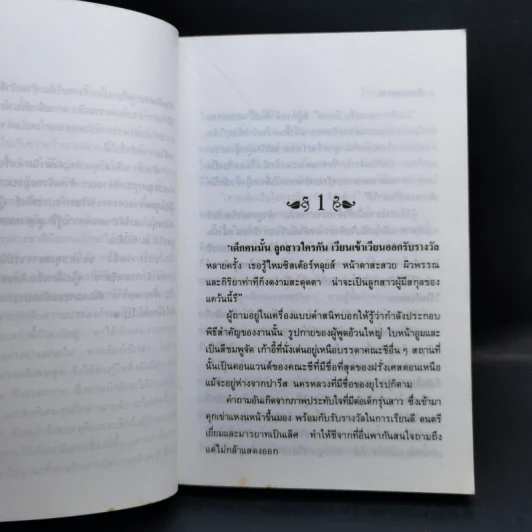 1
"เด็กคนนั้น ลูกสาวใครกัน เวียนเข้าเวียนออกรับรางวัล
หลายครั้ง เธอรู้ไหมซิสเตอร์หลุยส์ หน้าตาสะสวย ผิวพรรณ
และกิริยาท่าทีก็งดงามสะดุดตา น่าจะเป็นลูกสาวผู้มีสกุลของ
แคว้นนี้รึ"
ผู้ถามอยู่ในเครื่องแบบดำสนิทบอกให้รู้ว่ากำลังประกอบ
พิธีสำคัญของงานนั้น รูปกายของผู้พูดอ้วนใหญ่ ใบหน้าอูมและ
เป็นสีชมพูจัด เก้าอี้ที่นั่งเด่นอยู่เหนือบรรดาคณะชีอื่น ๆ สถานที่
นั้นเป็นคอนแวนต์ของคณะชีที่มีชื่อที่สุดของฝรั่งเศสตอนเหนือ
แม้จะอยู่ห่างจากปารีส นครหลวงที่มีชื่อของยุโรปก็ตาม
คำถามอันเกิดจากภาพประทับใจที่มีต่อเด็กรุ่นสาว ซึ่งเข้ามา
คุกเข่าแหงนหน้าขึ้นมอง พร้อมกับรับรางวัลในการเรียนดี ดนตรี
เยี่ยมและมารยาทเป็นเลิศ ทำให้ชีจากที่อื่นพากันสนใจถามถึง
แต่ไม่กล้าแสดงออก